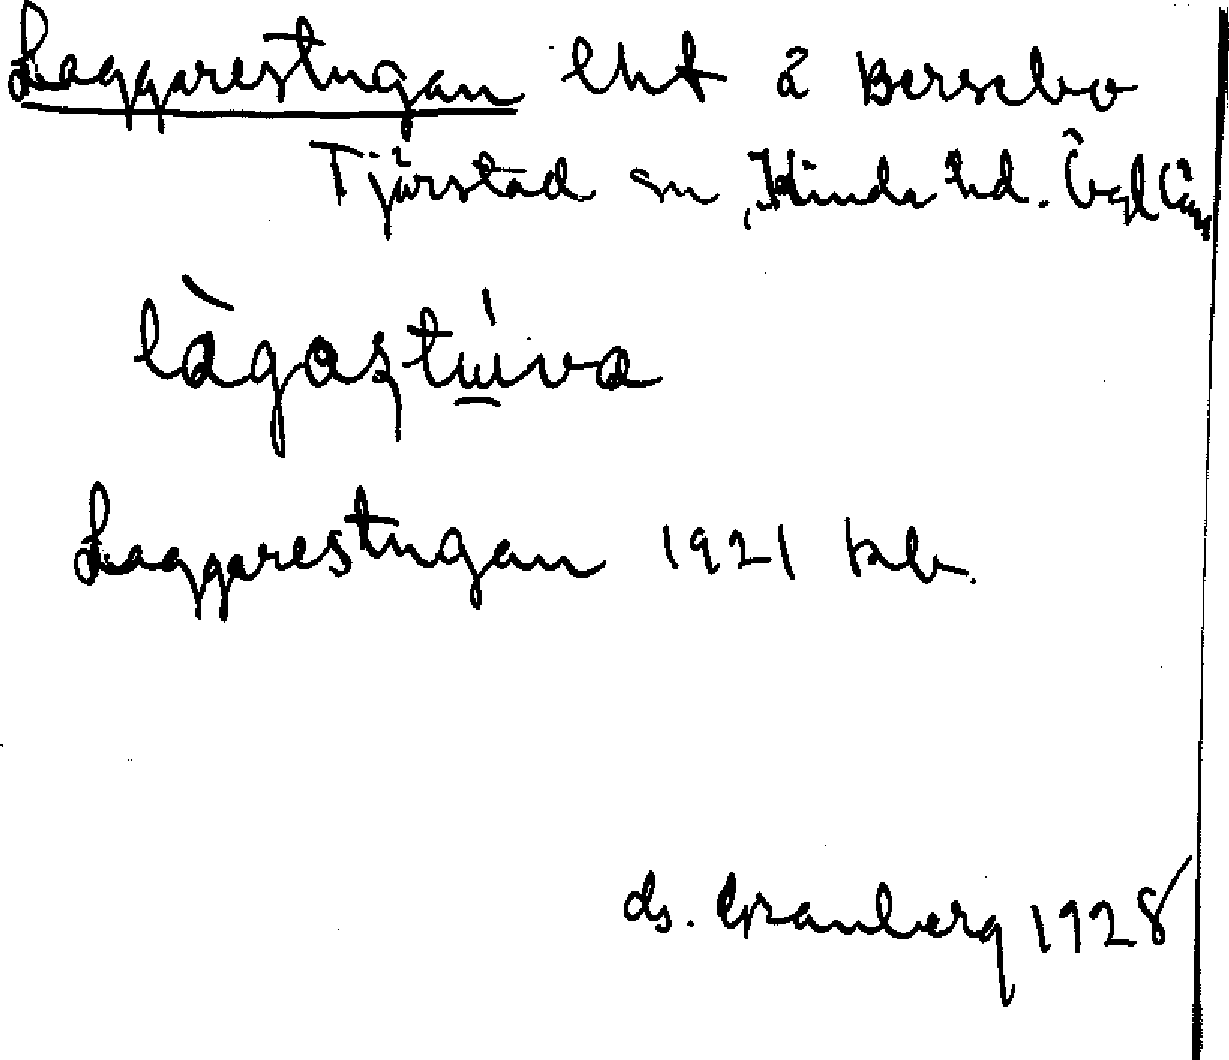 Laggarestugan lht å Bersebo
Tjärstad sn, Kinda hd. Ögl län
làgastúva
Laggarestugan 1921 kb.
ds. Granberg 1928